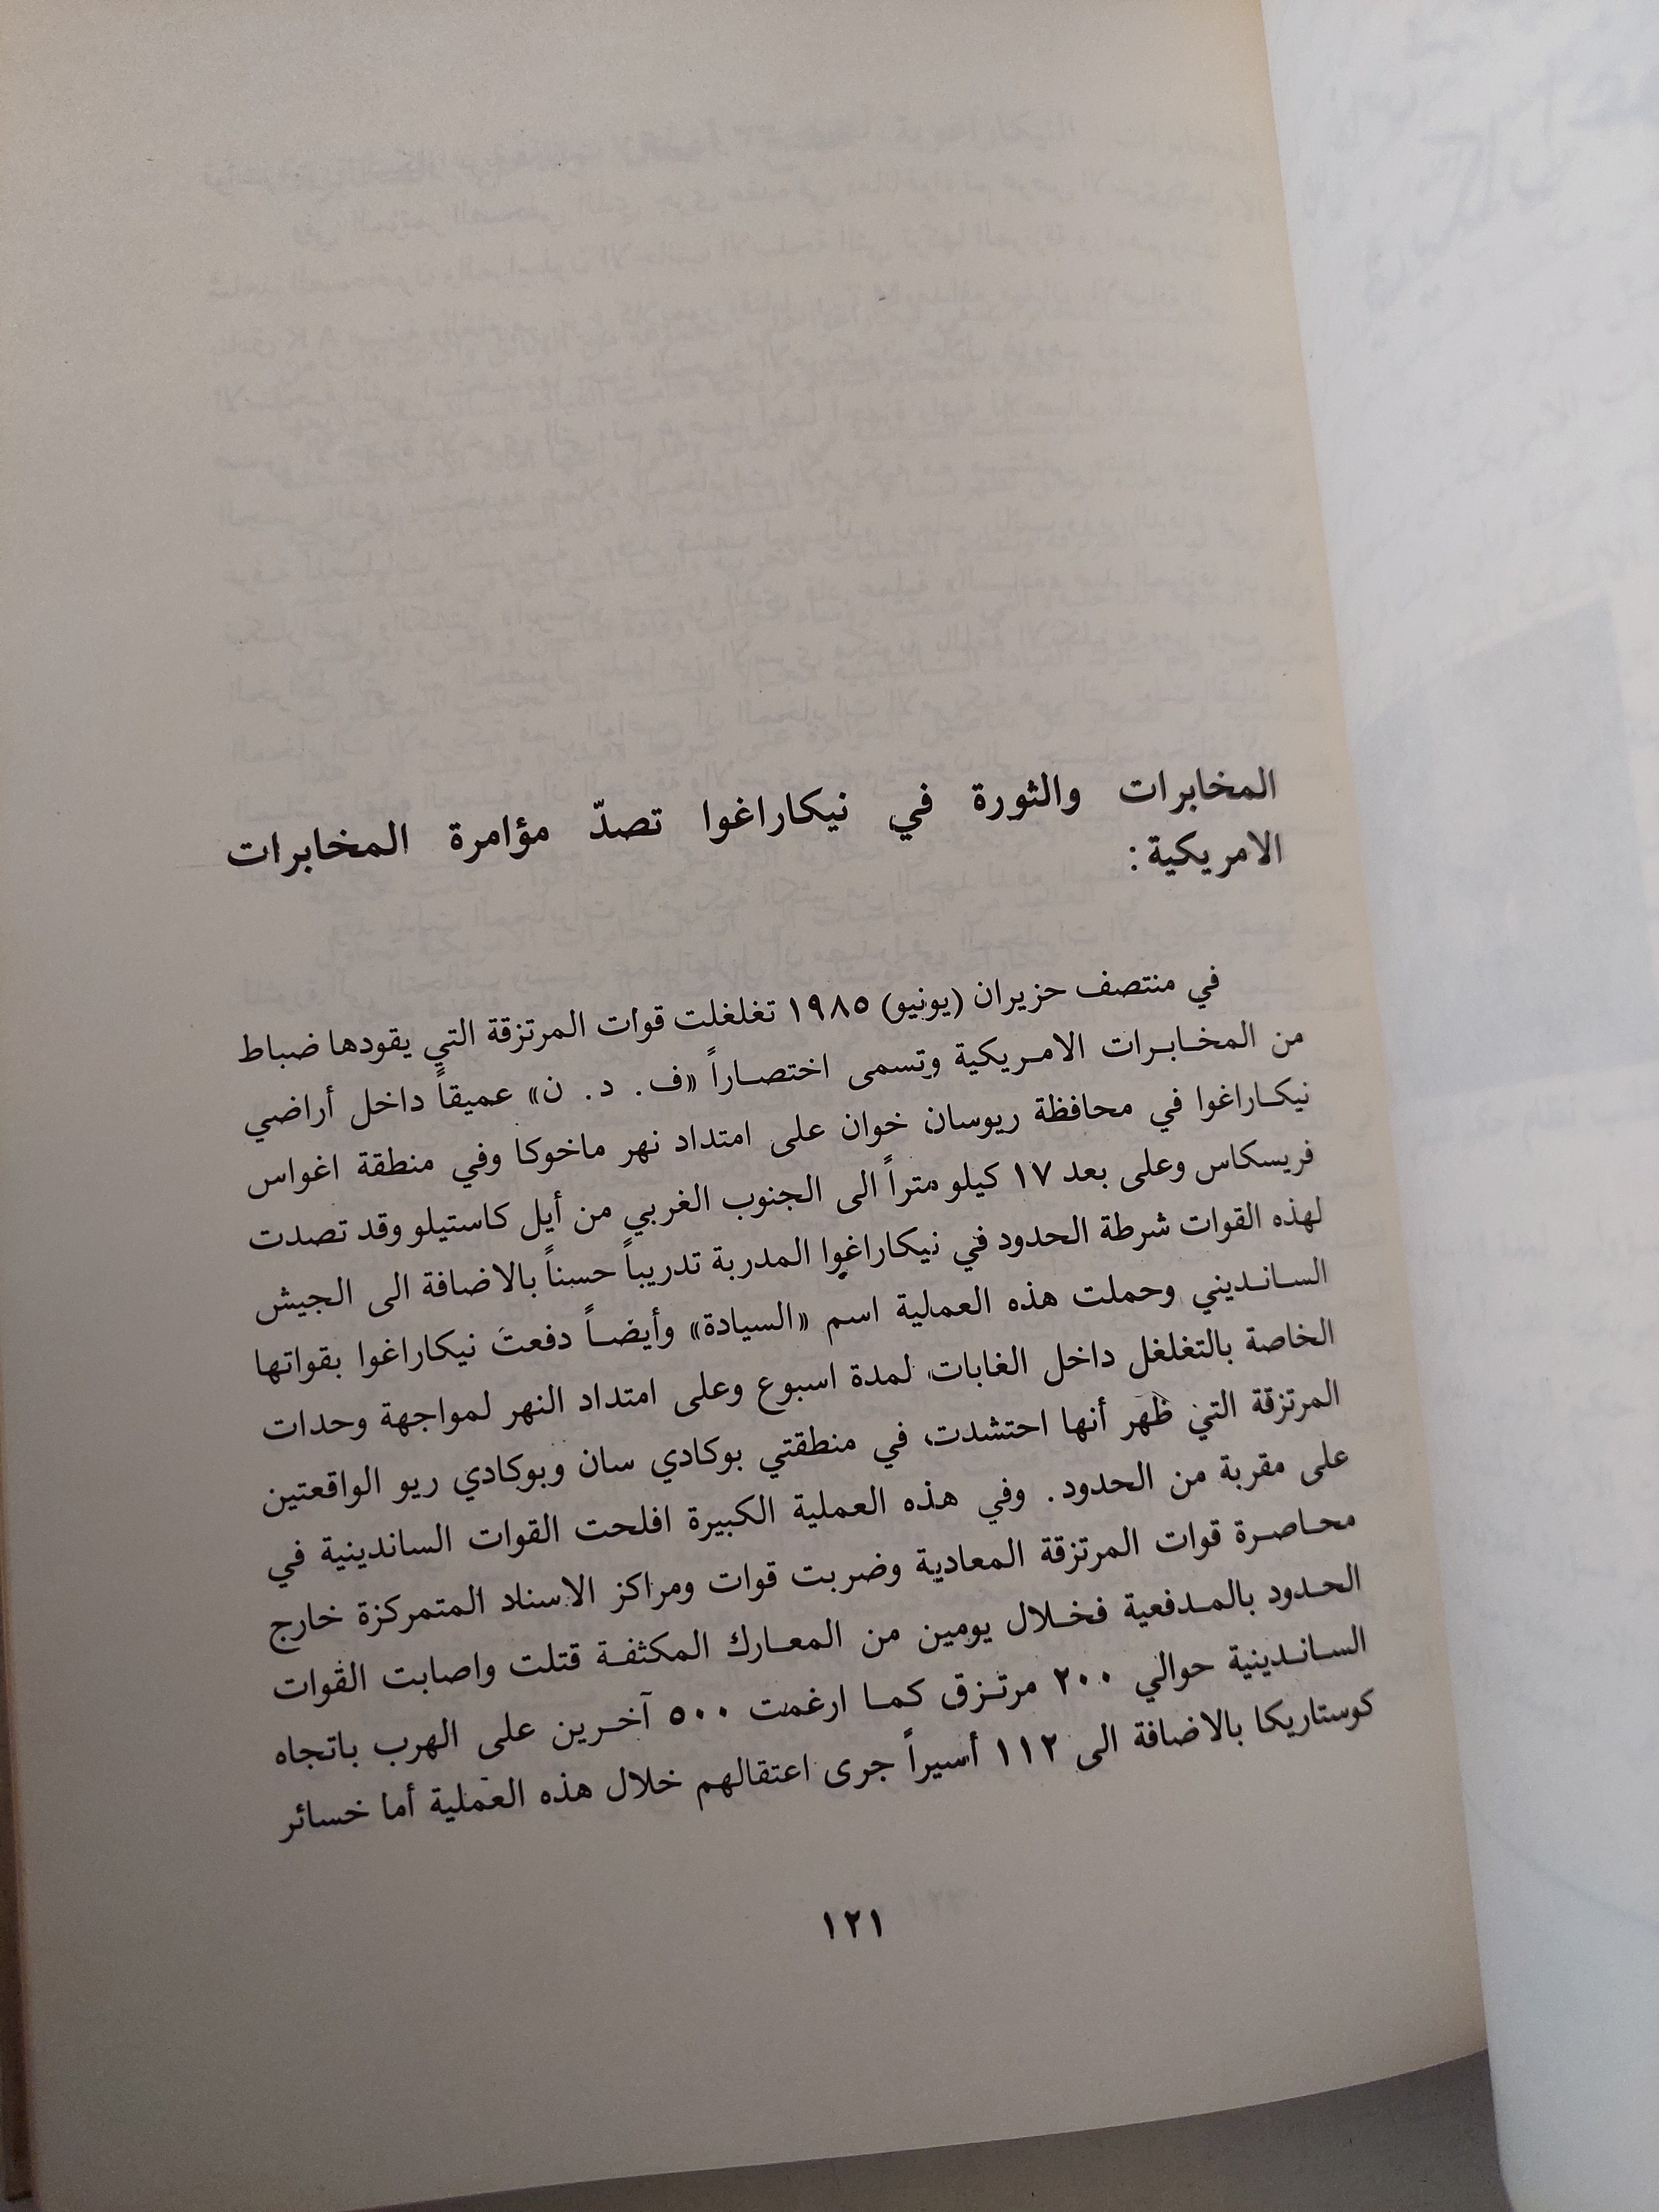 المخابرات والثورة في نيكاراغوا تصدّ مؤامرة المخابرات
الامريكية:
في منتصف حزيران (يونيو) ١٩٨٥ تغلغلت قوات المرتزقة التي يقودها ضباط
من المخابرات الامريكية وتسمى اختصاراً «ف. د. ن» عميقاً داخل أراضي
نيكاراغوا في محافظة ريوسان خوان على امتداد نهر ماخوكا وفي منطقة اغواس
فريسكاس وعلى بعد ١٧ كيلو متراً الى الجنوب الغربي من أيل كاستيلو وقد تصدت
لهذه القوات شرطة الحدود في نيكاراغوا المدربة تدريباً حسناً بالاضافة الى الجيش
السانديني وحملت هذه العملية اسم «السيادة» وأيضاً دفعت نيكاراغوا بقواتها
الخاصة بالتغلغل داخل الغابات لمدة اسبوع وعلى امتداد النهر لمواجهة وحدات
المرتزقة التي ظهر أنها احتشدت في منطقتي بوكادي سان وبوكادي ريو الواقعتين
على مقربة من الحدود. وفي هذه العملية الكبيرة افلحت القوات الساندينية في
محاصرة قوات المرتزقة المعادية وضربت قوات ومراكز الاسناد المتمركزة خارج
الحدود بالمدفعية فخلال يومين من المعارك المكثفة قتلت واصابت القوات
الساندينية حوالي ٢٠٠ مرتزق كما ارغمت ٥٠٠ آخرين على الهرب باتجاه
كوستاريكا بالاضافة الى ١١٢ أسيراً جرى اعتقالهم خلال هذه العملية أما خسائر
١٢١